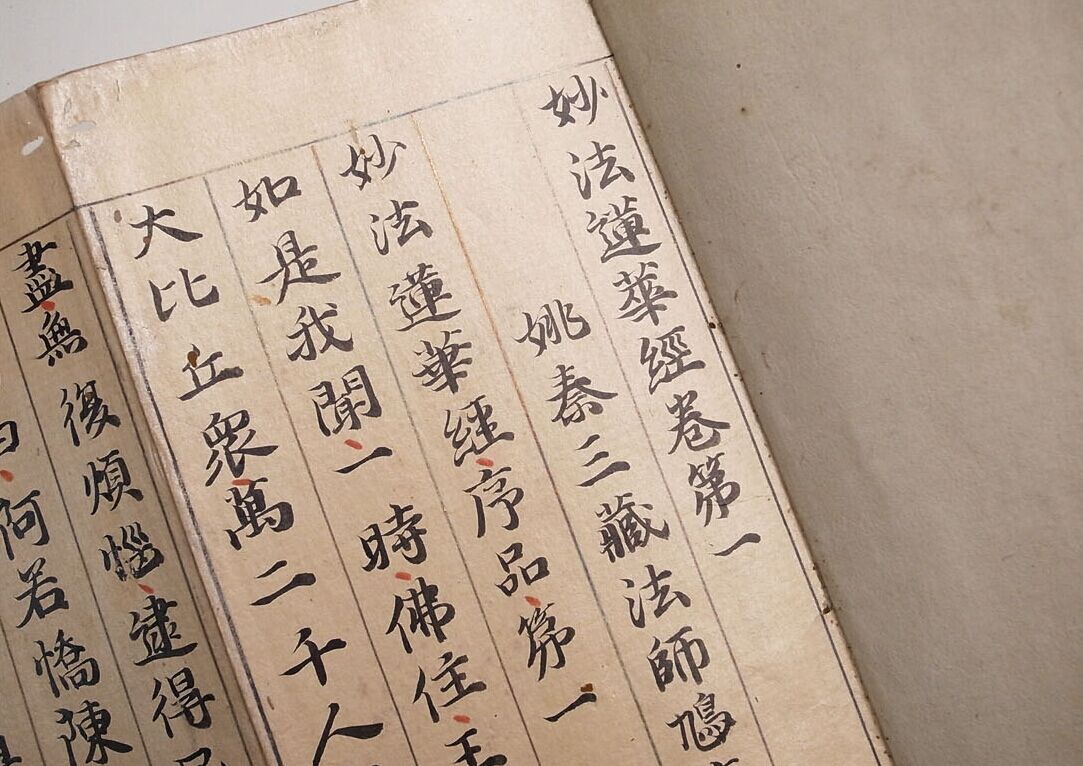 妙法蓮華經卷第一
姚秦三藏法師鳩
妙法蓮華經序品第一
如是我聞一時佛住王
大比丘眾萬二千人
盡無復煩惱逮得
曰阿若憍陳